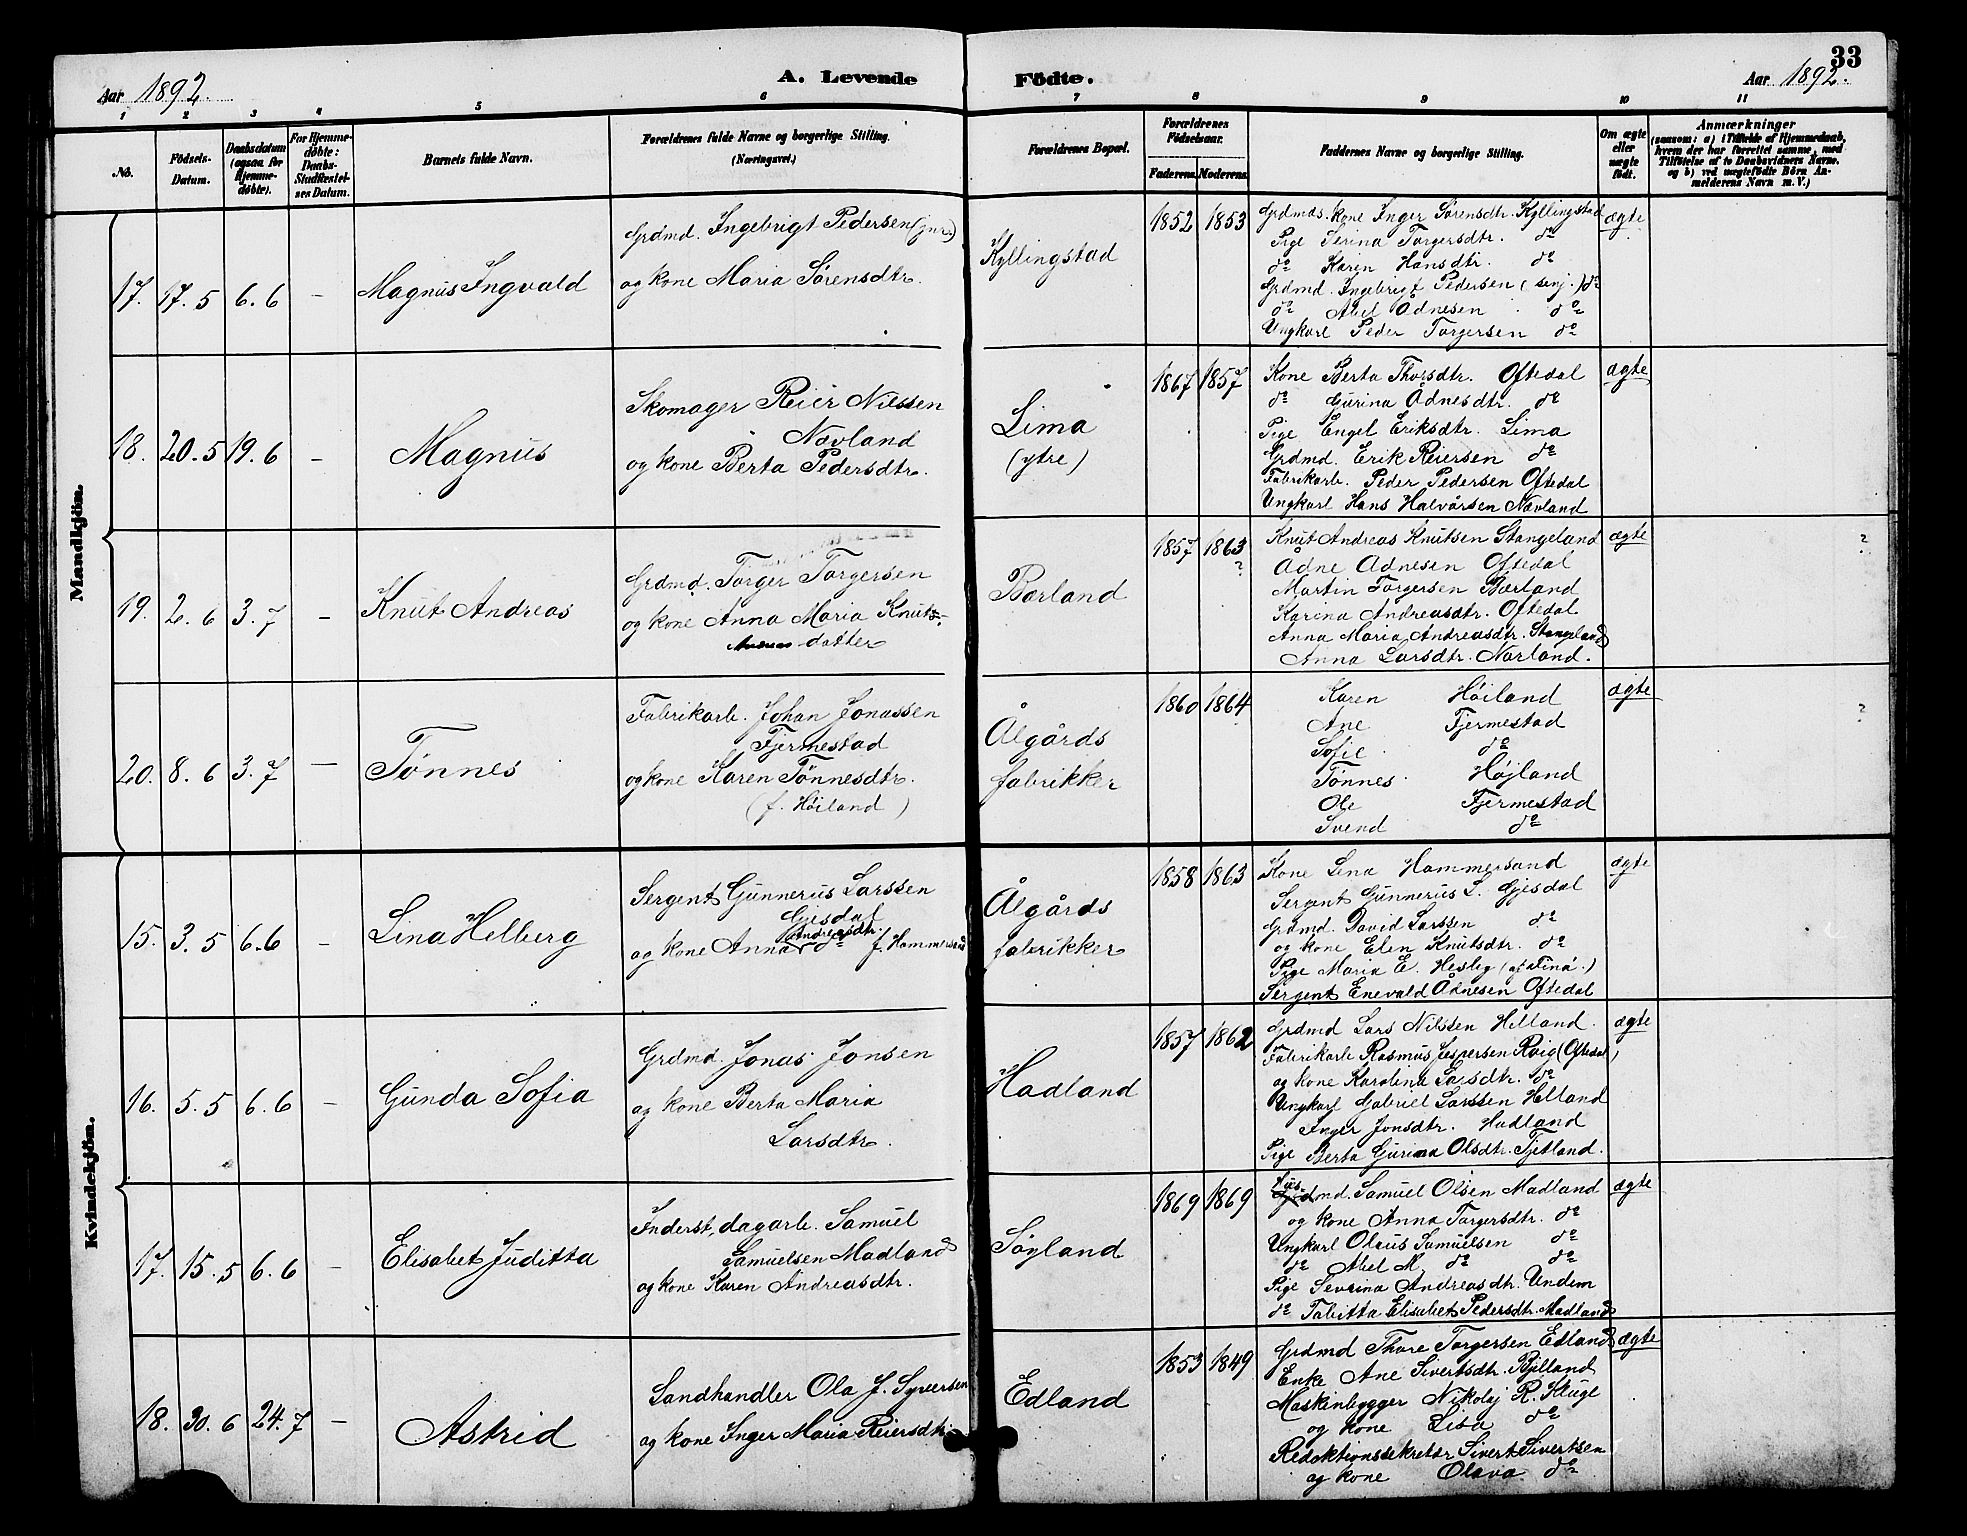 33
Aar 1892.
A. Levende
Födte.
Aar 1892.
1 2 3 4 5 6 7 8 9 10 11
No.
Födsels-
Datum.
Daabsdatum
(ogsaa for
Hjemme-
döbte).
For Hjemme-
döbte:
Daabs-
Stadfæstel-
ses Datum.
Barnets fulde Navn.
Forældrenes fulde Navne og borgerlige Stilling.
(Næringsvei.)
Forældrenes Bopæl.
Forældrenes
Födselsaar.
Faderens. Moderens.
Faddernes Navne og borgerlige Stilling.
Om ægte
eller
uægte
födt.
Anmærkninger
(saasom: a) i Tilfælde af Hjemmedaab,
hvem der har forrettet samme, med
Tilföielse af to Daabsvidners Navne,
og b) ved uægtefödte Börn An-
melderens Navn m. V.)
Mandkjön.
17. 17.5 6.6 – Magnus Ingvald
Grdmd. Ingebrigt Pedersen (jnr.)
og kone Maria Sörensdtr.
Kyllingstad
1852 1853
Grdmds. kone Inger Sörensdtr. Kyllingstad
Pige Serina Torgersdtr. do
do Karen Hansdtr. do
Grdmd. Ingebrigt Pedersen (senj.) do
do Abel Ådnesen do
Ungkarl Peder Torgersen do
ægte
18. 20.5 19.6 – Magnus
Skomager Reier Nilssen
Nævland
og kone Berta Pedersdtr.
Lima
(ytre)
1867 1857
Kone Berta Thorsdtr. Oftedal
do Gurina Ådnesdtr. do
Pige Engel Eriksdtr. Lima
Grdmd. Erik Reiersen do
Fabrikarb. Peder Pedersen Oftedal
Ungkarl Hans Halvårsen Nævland
ægte
19. 2.6 3.7 – Knut Andreas
Grdmd. Torger Torgersen
og kone Anna Maria Knuts-
datter
Bærland
1857 1863
?
Knut Andreas Knutsen Stangeland
Ådne Ådnesen Oftedal
Martin Torgersen Bærland
Karina Andreasdtr. Oftedal
Anna Maria Andreasdtr. Stangeland
Anna Larsdtr. Norland.
ægte
?
20. 8.6 3.7 – Tönnes
Fabrikarb. Johan Jonassen
Fjermestad
og kone Karen Tönnesdtr.
(f. Höiland)
Ålgårds
fabrikker
1860 1864
Karen Höiland
Ane Fjermestad
Sofie do
Tönnes Höjland
Ole Fjermestad
Svend do
ægte
?
Kvindekjön.
15. 3.5 6.6 – Lina Helberg
Sergent Gunnerus Larssen
Gjesdal
Andreasdtr.
og kone Anna do f. Hammersand
Ålgårds
fabrikker
1858 1863
Kone Lena Hammersand
Sergent Gunnerus L. Gjesdal
Grdmd. David Larssen do
og kone Elen Knutsdtr. do
Pige Maria E. Hesby
Sergent Enevald Ådnesen Oftedal
ægte
16. 5.5 6.6 – Gunda Sofia
Grdmd. Jonas Jonsen
og kone Berta Maria
Larsdtr.
Hadland
1857 1862
Grdmd Lars Nilssen Helland.
Fabrikarb Rasmus Jespersen Roig (Oftedal)
og kone Karolina Larsdtr. do
Ungkarl Gabriel Larssen Helland
Inger Jonsdtr. Hadland
Pige Berta Gurina Olsdtr. Tjetland.
ægte
17. 15.5 6.6 – Elisabet Juditta
Inderst, dagarb. Samuel
Samuelsen Madland
og kone Karen Andreasdtr.
Söyland
1869 1869
Husmd. Samuel Olsen Madland
og kone Anna Torgersdtr. do
Ungkarl Olaus Samuelsen do
do Abel M. do do
Pige Sevrina Andreasdtr. Undem
do Tabitta Elisabet Pedersdtr. Madland
ægte
18. 30.6 24.7 – Astrid
Landhandler Ola J. Syversen
og kone Inger Maria Reiersdtr.
Edland
1853 1849
Grdmd Thore Torgersen Edland
Enke Ane Sivertsdtr. Bjelland
Maskinbygger Nikolaj R. Kluge
og kone Lisa do
Redaktionssekretær Sivert Sivertsen
og kone Olava do
ægte